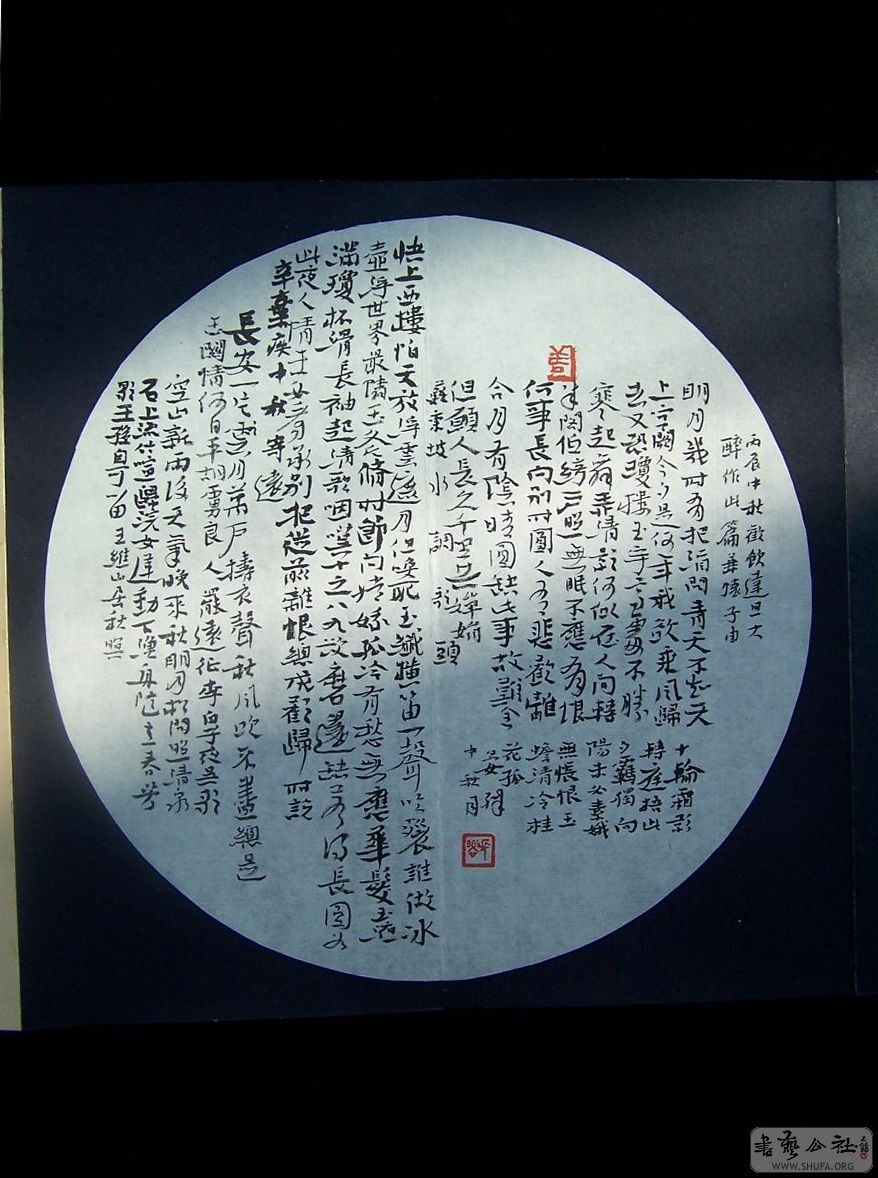 丙辰中秋歡飲達旦大
醉作此篇兼懷子由
明月幾時有把酒問青天不知天
上宮闕今夕是何年我欲乘風歸
去又恐瓊樓玉宇高處不勝
寒起舞弄清影何似在人間轉
朱閣低綺戶照無眠不應有恨
何事長向別時圓人有悲歡離
合月有陰晴圓缺此事古難全
但願人長久千里共嬋娟
蘇東坡水調歌頭
十輪霜影
轉庭梧此
夕羈獨向
隅未必素娥
無悵恨玉
蟾清冷桂
花孤
晏殊
中秋月
快上西樓怕天放浮雲遮月但喚取玉纖橫笛一聲吹裂誰做冰
壺浮世界最憐玉斧修時節問嫦娥孤冷有愁無應華髮玉
滿瓊杯滑長袖起清歌咽嘆十之八九欲磨還缺若得長圓如
此夜人情未必看承別把從前離恨總成歡歸時說
辛棄疾中秋寄遠
長安一片月萬戶擣衣聲秋風吹不盡總是
玉關情何日平胡虜良人罷遠征李白子夜吳歌
空山新雨後天氣晚來秋明月松間照清泉
石上流竹喧歸浣女蓮動下漁舟隨意春芳
歇王孫自可留王維山居秋暝
書藝公社
WWW.SHUFA.ORG